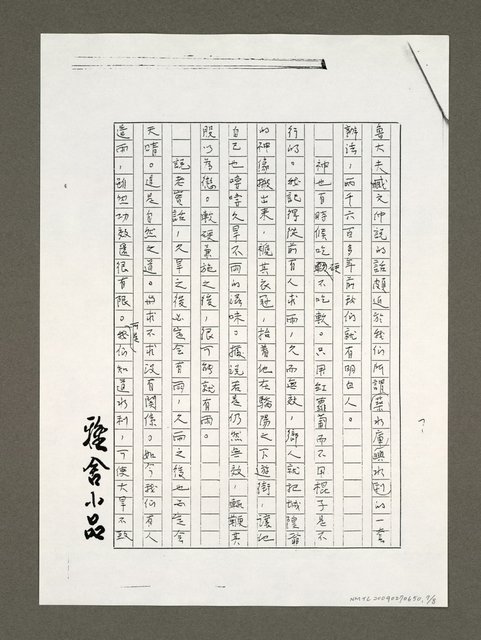 魯大夫臧文仲説的話頗近於我们所謂築水庫興水利的一套
辦法，兩千六百多年前我們就有明白人。
神也有時候吃硬不吃軟。只用紅蘿蔔而不用棍子是不
行的。我記得從前有人求雨，久而無效，鄉人就把城隍爺
的神像搬出來，褫其衣冠，抬着他在驕陽之下遊街，讓他
自己也嚐嚐久旱不雨的滋味。據説若是仍然無效，輒鞭其
股以為懲。軟硬兼施之後，很可能就有雨。
説老實話，久旱之後必定會有雨，久雨之後也必定會
天晴。這是自然之道。而求不求没有關係。如今我們有人
造雨，雖然功效還很有限。可是我們知道水利，可使大旱不致
雅舍小品
NMTL20090270650, 7/8